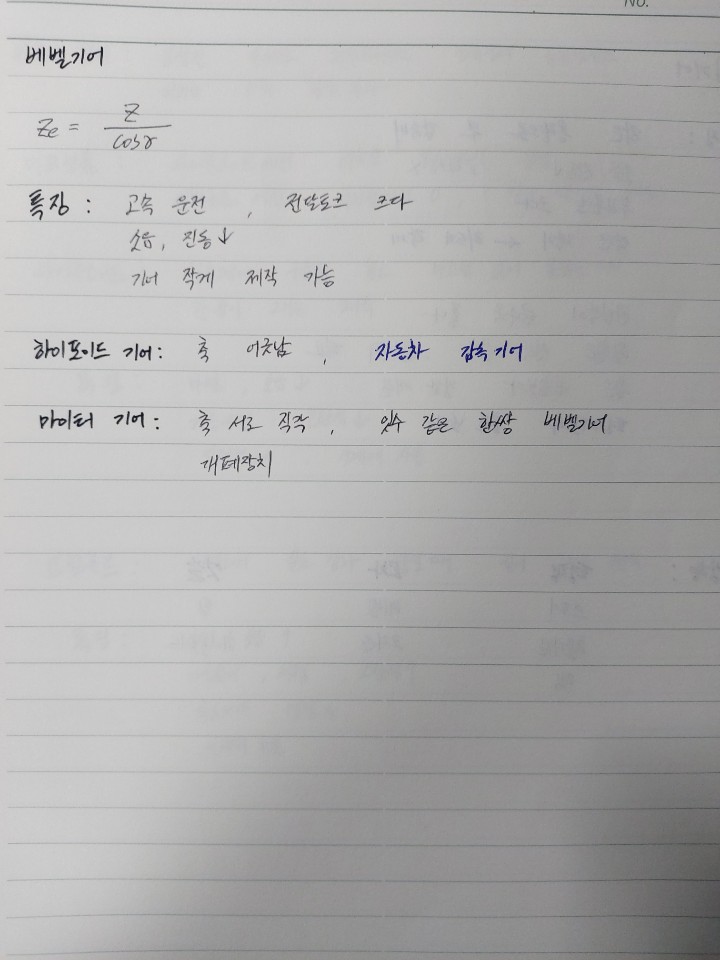 No.
베벨기어
Ze = Z / cosγ
특징 : 고속 운전 , 전달토크 크다
소음, 진동↓
기어 작게 제작 가능
하이포이드 기어 : 축 어긋남 , 자동차 감속기어
마이터 기어 : 축 서로 직각 , 잇수 같은 한쌍 베벨기어
개폐장치